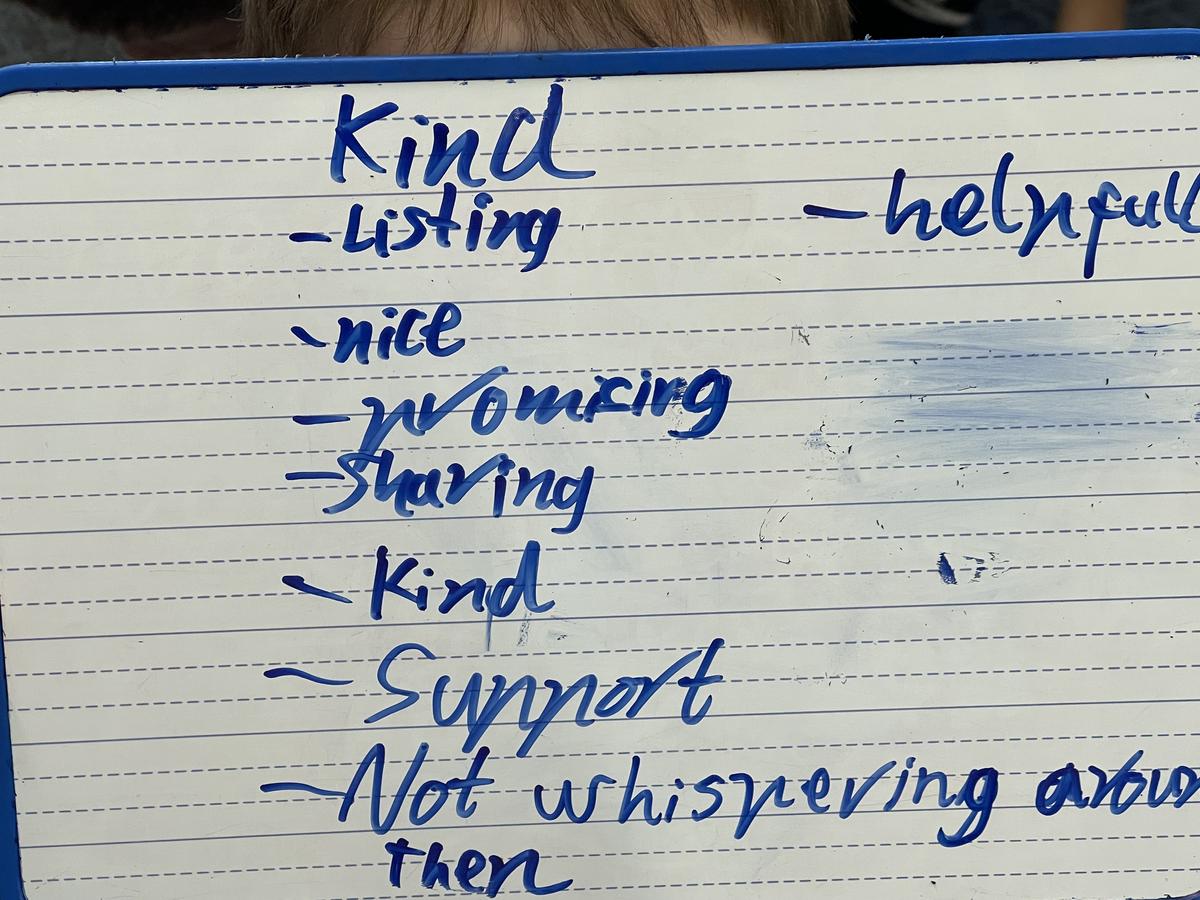 Kind
- Listing
- helpfull
- nice
- promising
- Sharing
- Kind
- Support
- Not whispering aroun
then